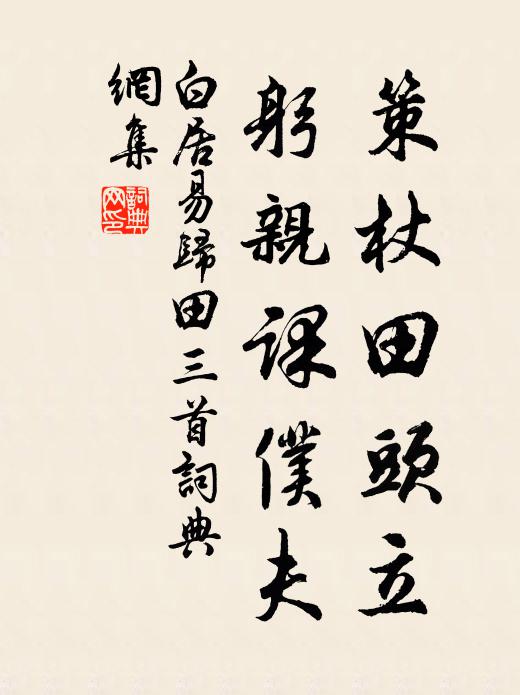 策杖田頭立
躬親課僕夫
白居易歸田三首詞典
網集
詞典
网印